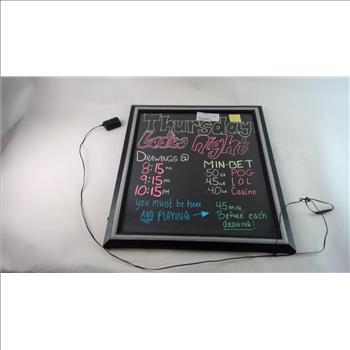 Thursday
Ladies Night
DRAWINGS @ MIN-BET
8:15 PM .50 POG
9:15 PM .45 LOL
10:15 PM .40 Casino
you must be here 45 MIN
AND PLAYING → Before each
DRAWING!